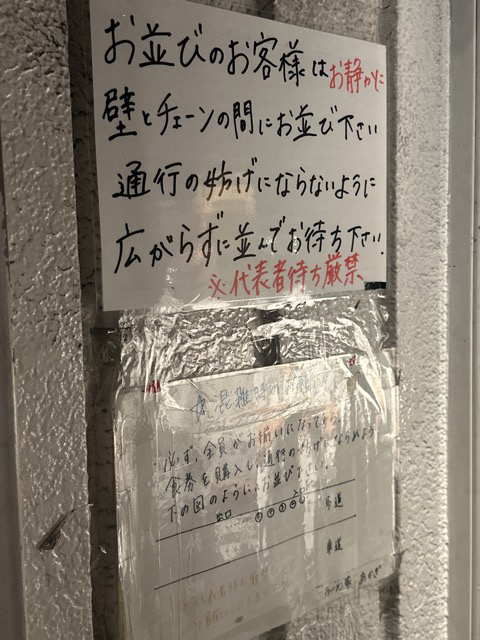 お並びのお客様はお静かに
壁とチェーンの間にお並び下さい
通行の妨げにならないように
広がらずに並んでお待ち下さい
※代表者待ち厳禁
混雑時のお願い
・必ず、全員がお揃いになってから、
食券を購入し、通行の妨げにならぬよう
下の図のように、お並び下さい。
歩道
車道
※代表者待ち厳禁